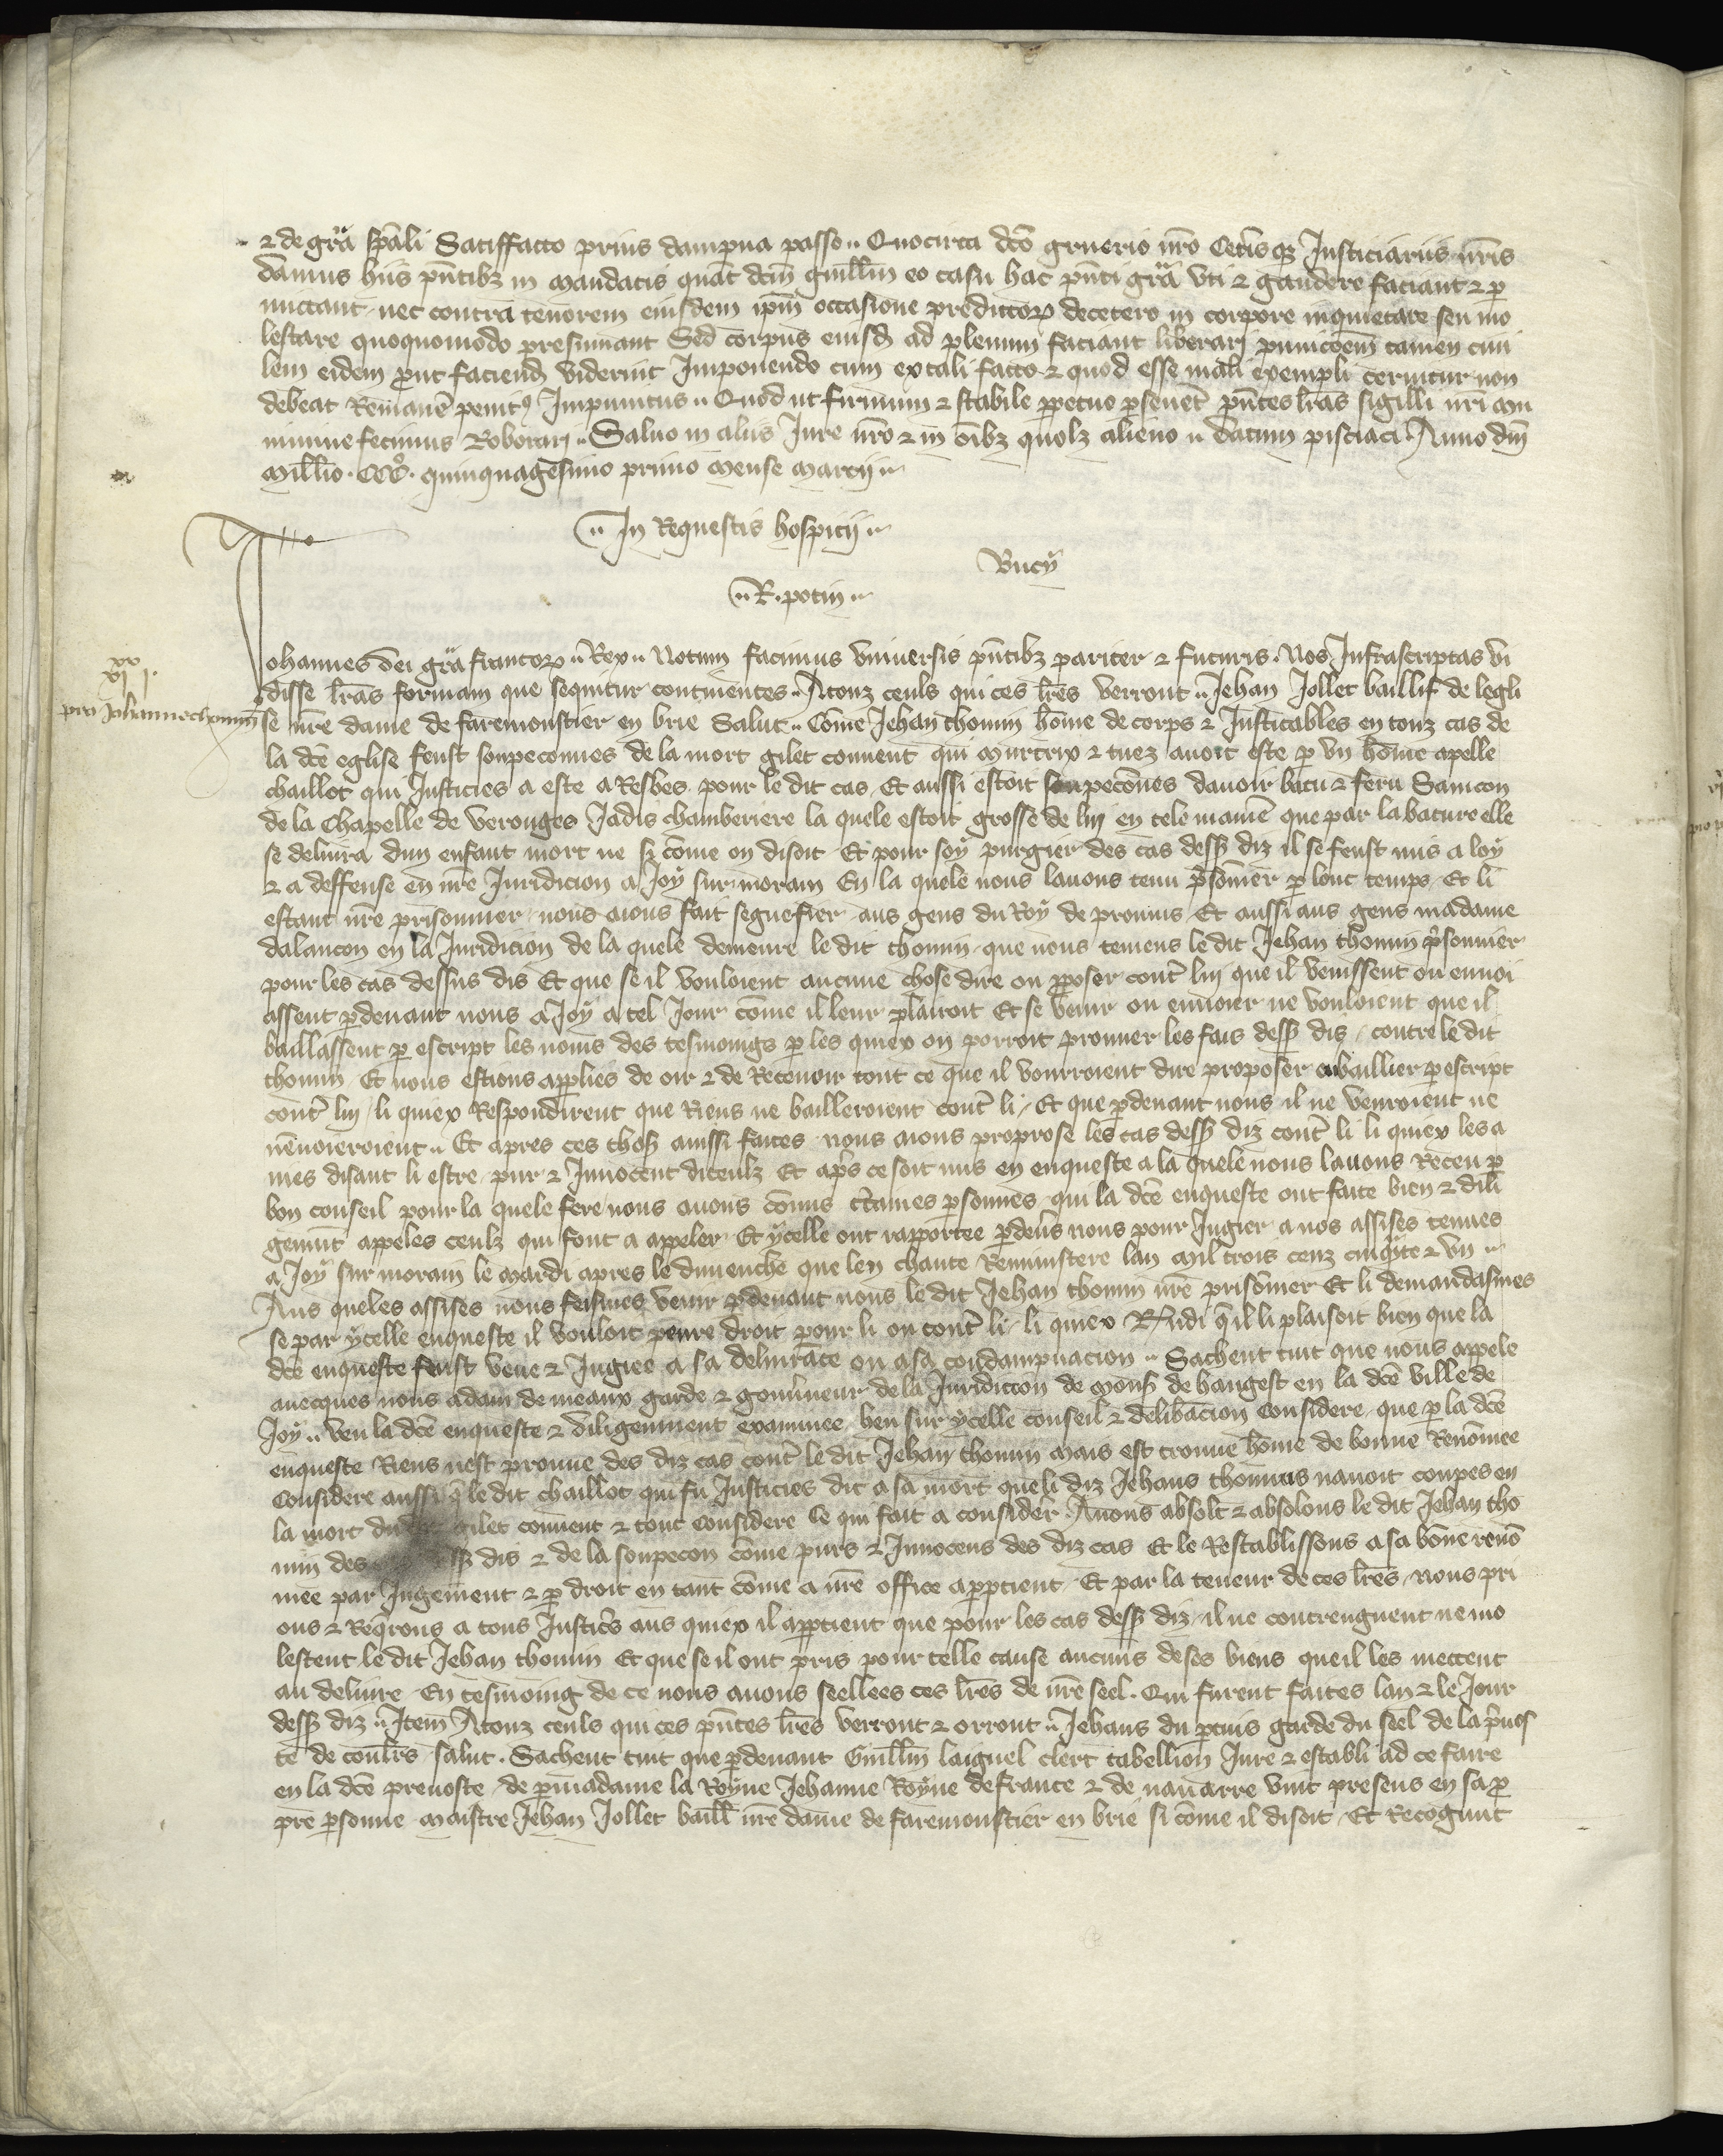 ⁊ de gr̄a sp̄ali Satiffacto prius dampna passo .. Quocirca dc̄o gruerio nr̄o Cetis qȝ Justiciariis nr̄is
damus hiis pn̄tibȝ in mandatis quat dc̄m guill̄m eo casu hac pn̄ti gr̄a vti ⁊ gaudere faciant ⁊ ꝑ
mictant nec contra tenorem eiusdem ip̄m occasione predictoꝝ decetero in corpore inquietare seu mo
lestare quoquomodo presumant Sed corpus eiusd ad plenum faciant liberarj punicōem tamen ciui
lem eidem ꝓut faciend viderint Imponendo cum ex tali facto ⁊ quod esse mali exempli cernitur non
debeat Remanē penitꝰ Impunitus .. Quod ut firmum ⁊ stabile ꝑpetuo ꝑseuet pn̄tes lr̄as sigilli nr̄i mu
nimine fecimus Roborarj .. Saluo in aliis Jure nr̄o ⁊ in oībȝ quolȝ alieno .. datum pisciaci Anno dn̄i
Mill̄io . CCCº . quinquagesimo primo mense marcij ..
.. In Requestis hospicij ..
Bucy
.. R . potin ..
Johannes dei gr̄a francoꝝ .. Rex .. Notum facimus vniuersis pn̄tibȝ pariter ⁊ futuris . Nos Infrascriptas vi
xx
xi j .
disse lr̄as formam que sequitur continentes .. A touz ceuls qui ces lr̄es verront .. Jehan Jollet baillif de legli
pro Johanne thomin
se nr̄e dame de faremonstier en brie Salut .. Cōme Jehan thomin hōme de corps ⁊ Justicables en touz cas de
la dc̄e eglise feust soupeconnes de la mort gilet conuent qui murtrix ⁊ tuez auoit este ꝑ vn hōme apelle
chaillot qui Justicies a este a Resbes pour le dit cas Et aussi estoit soupecōnes dauoir batu ⁊ feru Sanicon
de la Chapelle de veronges Jadis chamberiere la quele estoit grosse de luy en tele manie que par la bature elle
se deliura dun enfant mort ne si cōme on disoit Et pour soy purgier des cas dess diz il se feust mis a loy
⁊ a deffense en nr̄e Juridicion a Joy sur moram En la quele nous lauons tenu p̄sonnier ꝑ lonc temps Et li
estant nr̄e prisonnier nous aious fait segnefier aus gens du Roy de prouins Et aussi aus gens madame
dalancon en la Juridicion de la quele demeure le dit thomin que nous teniens le dit Jehan thomin p̄sonnier
pour les cas dessus dis Et que se il vouloient aucune chose dire ou ꝓposer cont̄ luy que il venissent ou enuoi
assent ꝑdeuant nous a Joy a tel Jour cōme il leur plairoit Et se venir ou enuoier ne vouloient que il
baillassent ꝑ escript les noms des tesmoings ꝑ les quiex on porroit prouuer les fais dess dis contre le dit
thomin Et nous estions appliés de oir ⁊ de Receuoir tout ce que il vourroient dire proposer ou baillier ꝑ escript
cont̄ luy li quiex Respondirent que Riens ne bailleroient cont̄ li Et que ꝑdeuant nous il ne venroient ne
nenuoieroient .. Et apres ces chos aiussi faites nous aious proprose les cas dess diz cont̄ li li quiex les a
nies disant li estre pur ⁊ Innocent diceulz Et ap̄s ce soit mis en enqueste a la quele nous lauons Receu ꝑ
bon conseil pour la quele fere nous auons cōmis c̄taines ꝑsonnes qui la dc̄e enqueste ont faite bien ⁊ dili
genmt̄ appeles ceulz qui font a appeler Et ycelle ont rapportee ꝑdeūs nous pour Jugier a nos assises tenues
a Joy sur morain le mardi apres le dimenche que len chante Reministere lan mil trois cenz cinq̄te ⁊ vn ..
Aus queles assises nous feismes venir ꝑdeuant nous le dit Jehan thomin nr̄e prisonnier Et li demandasmes
se par ycelle enqueste il vouloit penre droit pour li ou cont̄ li li quiex R̄ndi q̄ il li plaisoit bien que la
dc̄e enqueste feust veue ⁊ Jugiee a sa deliurāce ou a sa condampnacion .. Sachent tuit que nous appele
auecques nous adam de meaux garde ⁊ gouūneur de la Juridiccon de mons de hangest en la dc̄e ville de
Joy .. veu la dc̄e enqueste ⁊ diligenment examinee beu sur ycelle conseil ⁊ delibacion Considere que ꝑ la dc̄e
enqueste Riens nest prouue des diz cas cont̄ le dit Jehan thomin mais est trouue hōme de bonne Renōmee
Considere aussi q̄ le dit chaillot qui fu Justicies dit a sa mort que li diz Jehans thomins nauoit coupes en
la mort du dit gilet conuent ⁊ tout Considere Ce qui fait a consider Auons absolt ⁊ absolons le dit Jehan tho
min des dess dis ⁊ de la soupecon cōme purs ⁊ Innocens des diz cas Et le Restablissons a sa bōne renō
mee par Jugement ⁊ ꝑ droit en tant cōme a nr̄e office apptient Et par la teneur de ces lr̄es nous pri
ons ⁊ Req̄rons a tous Justic̄s aus quiex il apptient que pour les cas dess diz il ne contrengnent ne mo
lestent le dit Jehan thomin Et que se il ont pris pour telle cause aucuns de ses biens que il les mettent
au deliure En tesmoing de ce nous auons seellees ces lr̄es de nr̄e seel . Qui furent faites lan ⁊ le Jour
dess diz .. Item A touz ceuls qui ces pn̄tes lr̄es verront ⁊ orront .. Jehans du ꝑtuis garde du seel de la p̄uos
te de coulrs salut . Sachent tuit que ꝑdeuant Guill̄m laiguel clerc tabellion Jure ⁊ establi ad ce faire
en la dc̄e preuoste de ꝑ madame la Royne Jehanne Royne de france ⁊ de nauarre vint presens en sa ꝓ
pre ꝑsonne maistre Jehan Jollet baill̄ nr̄e dame de faremonstier en brie si cōme il disoit Et Recognut